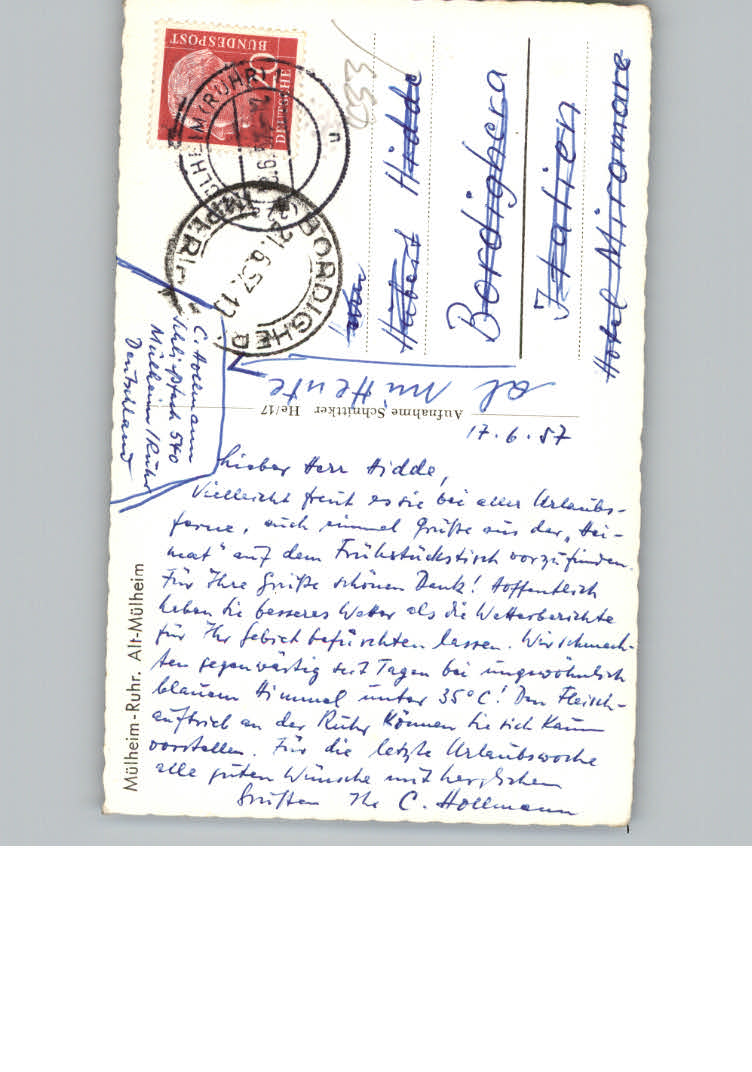 DEUTSCHE
BUNDESPOST
MÜLHEIM (RUHR)
BORDIGHERA
IMPERIA
21.6.57
550
Herrn
Hubert Hidde
Bordighera
Italien
Hotel Miramare
al mittente
C. Hollmann
540
Mülheim/Ruhr
Deutschland
Aufnahme Schnittker He/17
Mülheim-Ruhr. Alt-Mülheim
17.6.57
Lieber Herr Hidde,
Vielleicht freut es sie bei aller Urlaubs-
ferne, auch einmal Grüße aus der „Hei-
mat" auf dem Frühstückstisch vorzufinden.
Für Ihre Grüße schönen Dank! Hoffentlich
haben Sie besseres Wetter als die Wetterberichte
für Ihr Gebiet befürchten lassen. Wir schmach-
ten gegenwärtig seit Tagen bei ungewöhnlich
blauem Himmel unter 35°C! Den Fleisch-
auftrieb an der Ruhr können Sie sich kaum
vorstellen. Für die letzte Urlaubswoche
alle guten Wünsche mit herzlichen
Grüßen Ihr C. Hollmann